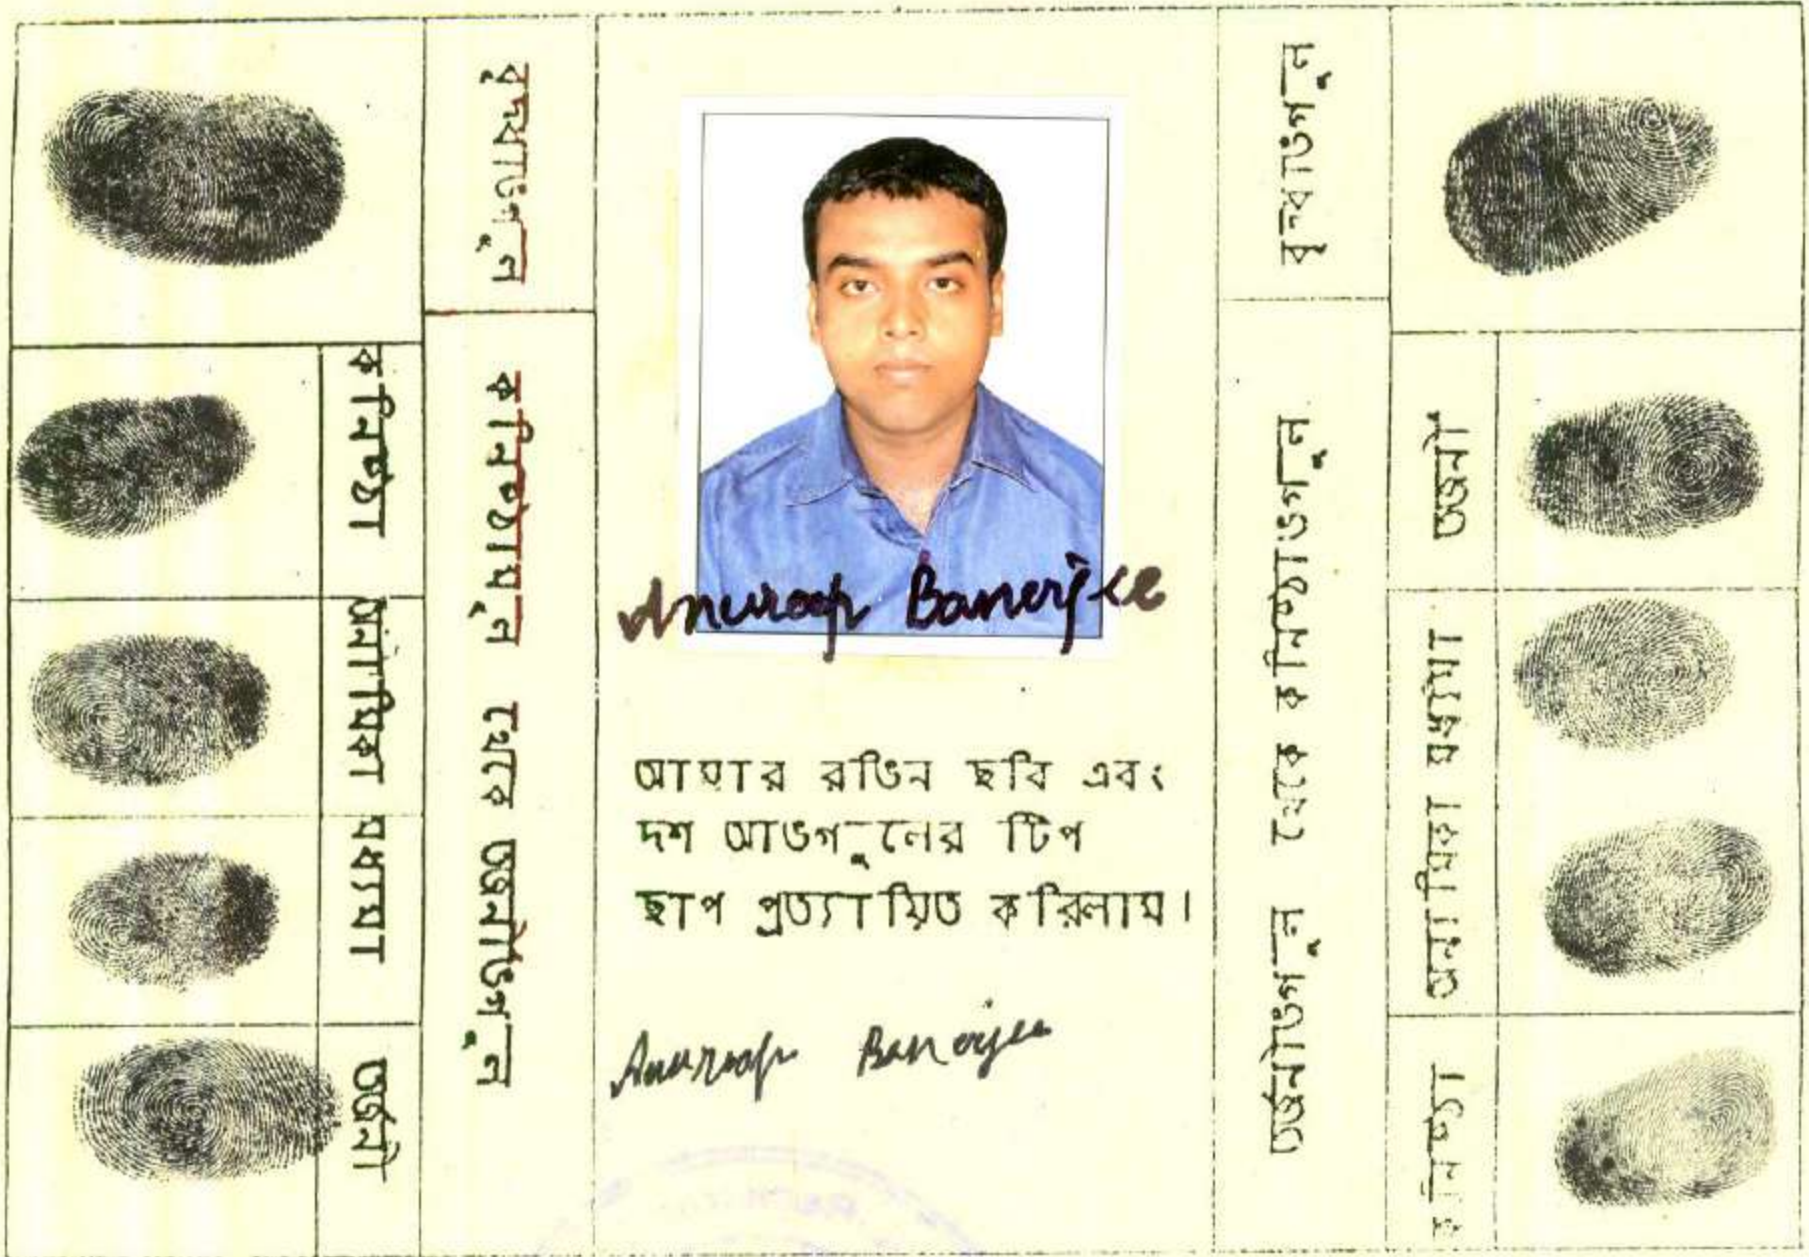 বৃদ্ধাঙ্গুল
কনিষ্ঠা
অনামিকা
মধ্যমা
তর্জনী
কনিষ্ঠাঙ্গুল থেকে তর্জনীঙ্গুল
Anuroop Banerjee
আমার রঙিন ছবি এবং
দশ আঙ্গুলের টিপ
ছাপ প্রত্যায়িত করিলাম।
Anuroop Banerjee
বৃদ্ধাঙ্গুল
তর্জনীঙ্গুল থেকে কনিষ্ঠাঙ্গুল
তর্জনী
মধ্যমা
অনামিকা
কনিষ্ঠা